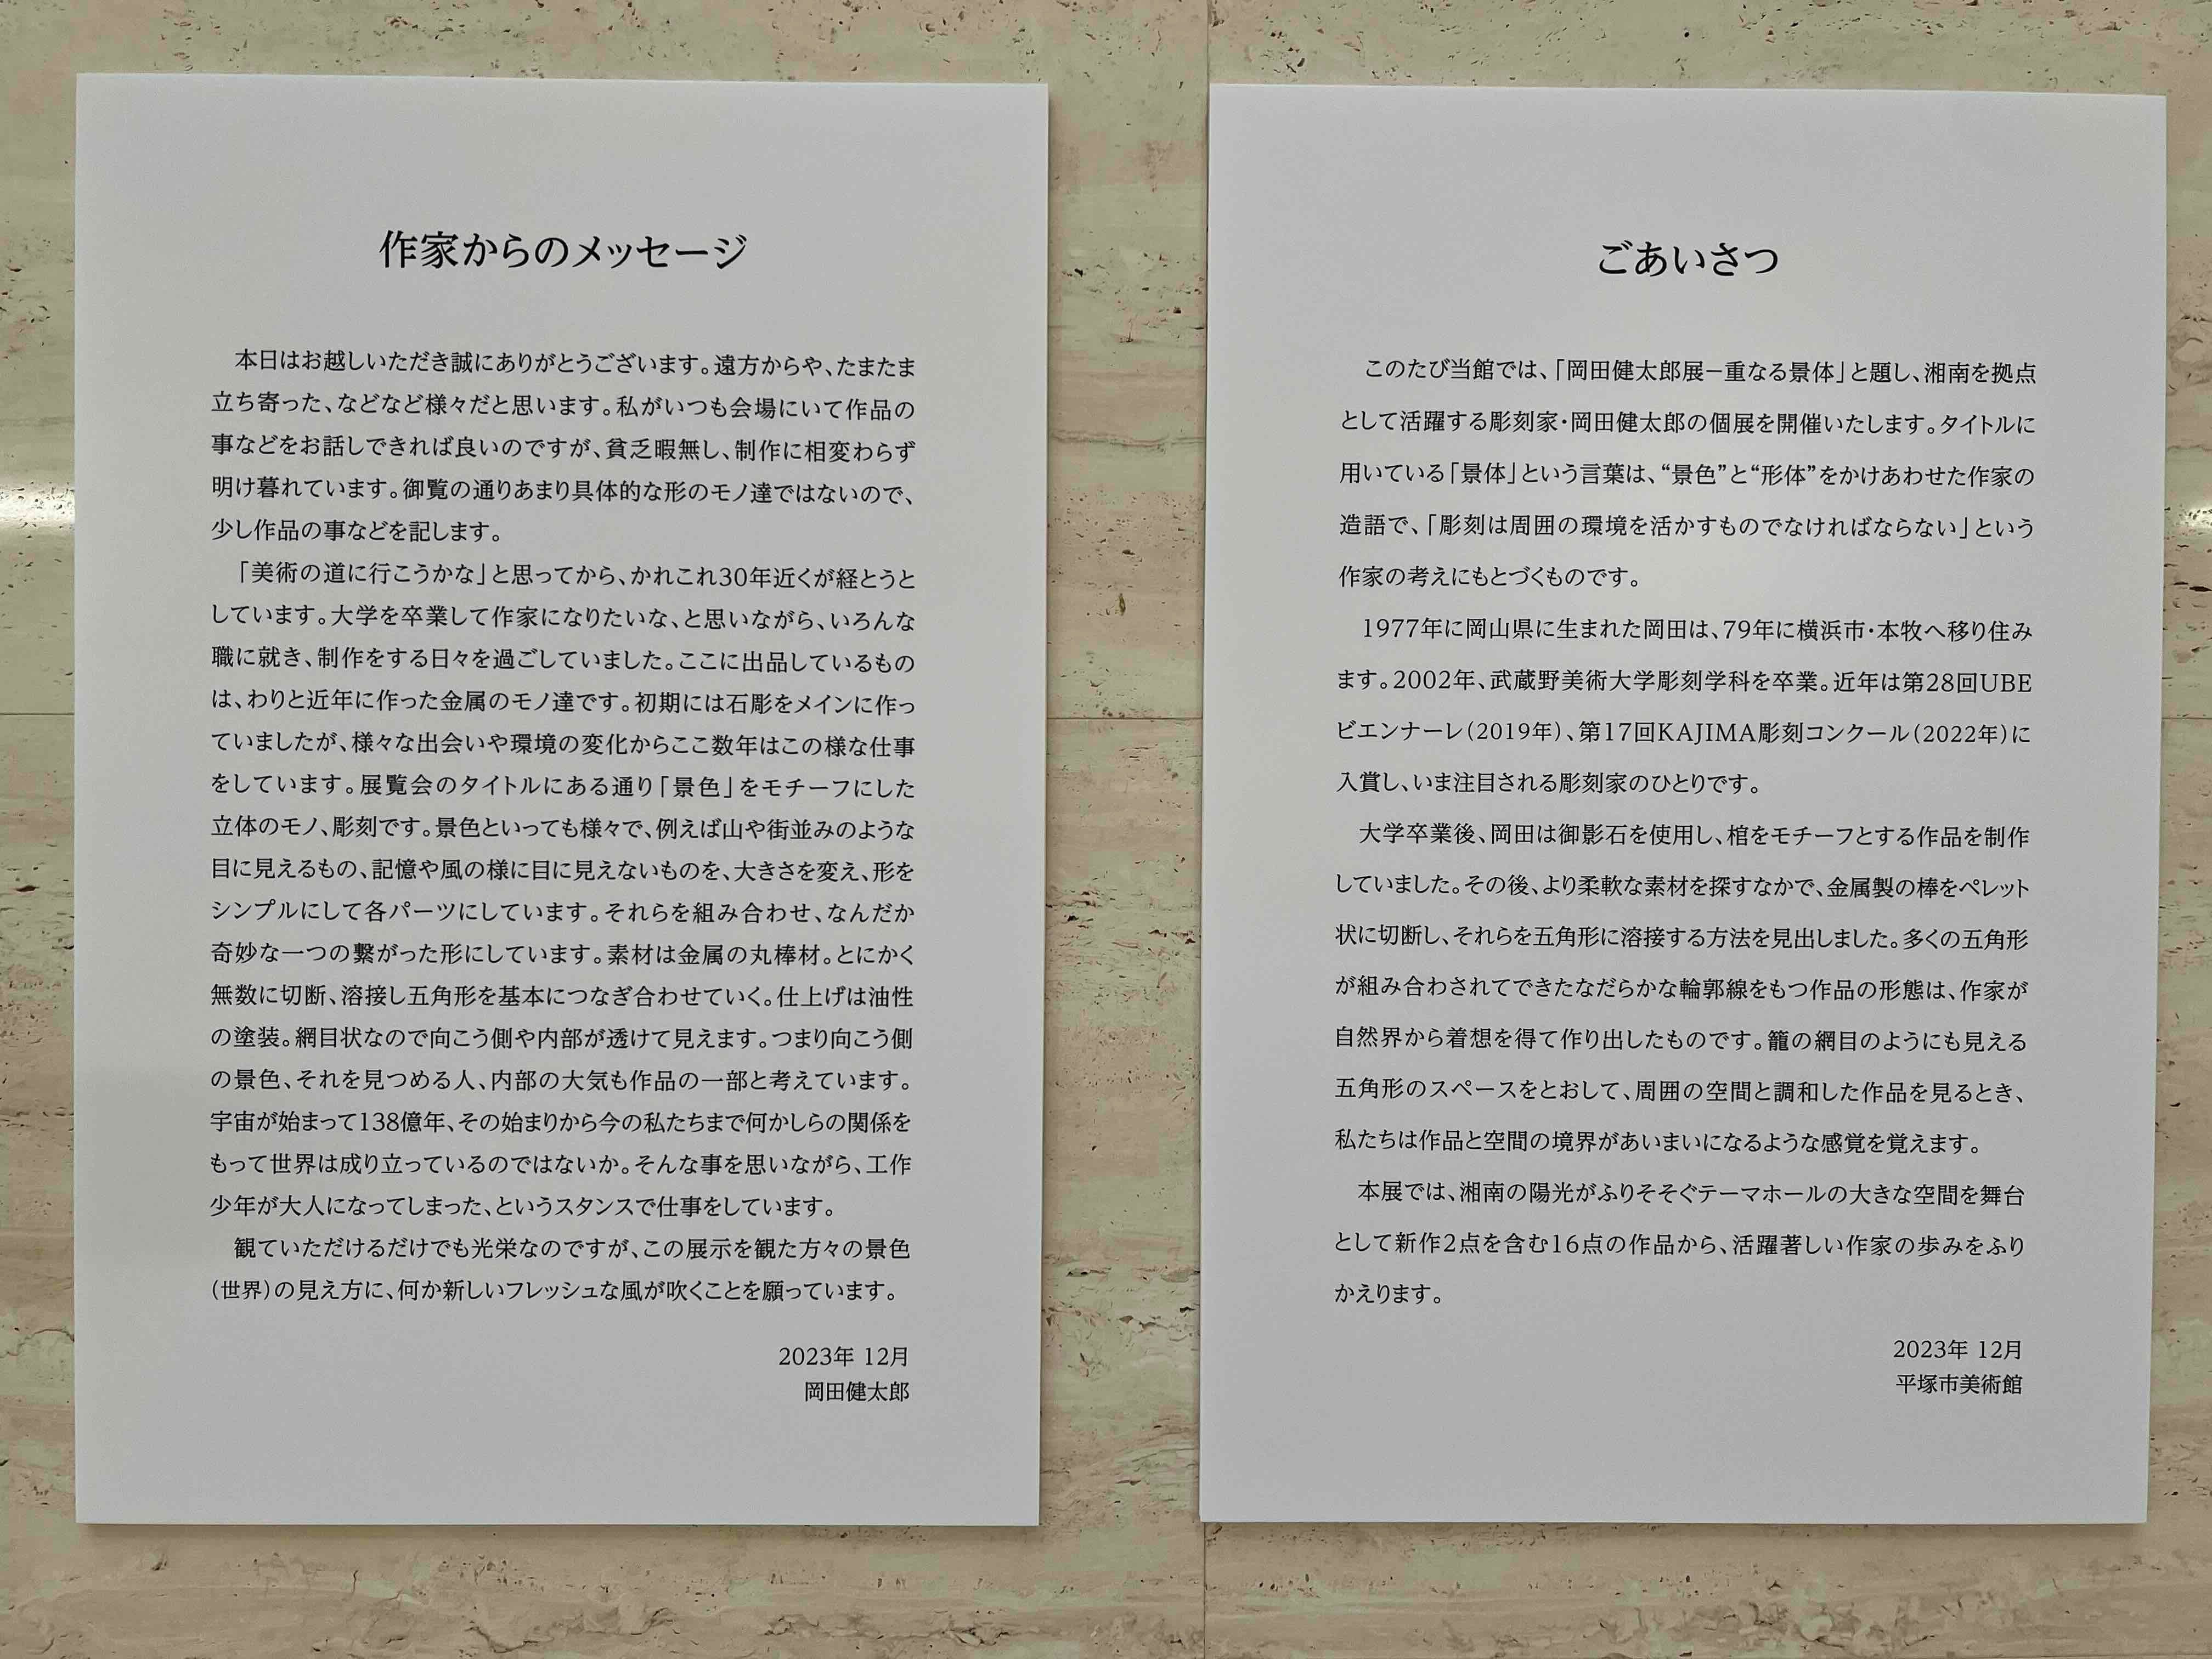 作家からのメッセージ
本日はお越しいただき誠にありがとうございます。遠方からや、たまたま
立ち寄った、などなど様々だと思います。私がいつも会場にいて作品の
事などをお話しできれば良いのですが、貧乏暇無し、制作に相変わらず
明け暮れています。御覧の通りあまり具体的な形のモノ達ではないので、
少し作品の事などを記します。
「美術の道に行こうかな」と思ってから、かれこれ30年近くが経とうと
しています。大学を卒業して作家になりたいな、と思いながら、いろんな
職に就き、制作をする日々を過ごしていました。ここに出品しているもの
は、わりと近年に作った金属のモノ達です。初期には石彫をメインに作っ
ていましたが、様々な出会いや環境の変化からここ数年はこの様な仕事
をしています。展覧会のタイトルにある通り「景色」をモチーフにした
立体のモノ、彫刻です。景色といっても様々で、例えば山や街並みのような
目に見えるもの、記憶や風の様に目に見えないものを、大きさを変え、形を
シンプルにして各パーツにしています。それらを組み合わせ、なんだか
奇妙な一つの繋がった形にしています。素材は金属の丸棒材。とにかく
無数に切断、溶接し五角形を基本につなぎ合わせていく。仕上げは油性
の塗装。網目状なので向こう側や内部が透けて見えます。つまり向こう側
の景色、それを見つめる人、内部の大気も作品の一部と考えています。
宇宙が始まって138億年、その始まりから今の私たちまで何かしらの関係を
もって世界は成り立っているのではないか。そんな事を思いながら、工作
少年が大人になってしまった、というスタンスで仕事をしています。
観ていただけるだけでも光栄なのですが、この展示を観た方々の景色
(世界)の見え方に、何か新しいフレッシュな風が吹くことを願っています。
2023年 12月
岡田健太郎
ごあいさつ
このたび当館では、「岡田健太郎展−重なる景体」と題し、湘南を拠点
として活躍する彫刻家・岡田健太郎の個展を開催いたします。タイトルに
用いている「景体」という言葉は、“景色”と“形体”をかけあわせた作家の
造語で、「彫刻は周囲の環境を活かすものでなければならない」という
作家の考えにもとづくものです。
1977年に岡山県に生まれた岡田は、79年に横浜市・本牧へ移り住み
ます。2002年、武蔵野美術大学彫刻学科を卒業。近年は第28回UBE
ビエンナーレ(2019年)、第17回KAJIMA彫刻コンクール(2022年)に
入賞し、いま注目される彫刻家のひとりです。
大学卒業後、岡田は御影石を使用し、棺をモチーフとする作品を制作
していました。その後、より柔軟な素材を探すなかで、金属製の棒をペレット
状に切断し、それらを五角形に溶接する方法を見出しました。多くの五角形
が組み合わされてできたなだらかな輪郭線をもつ作品の形態は、作家が
自然界から着想を得て作り出したものです。籠の網目のようにも見える
五角形のスペースをとおして、周囲の空間と調和した作品を見るとき、
私たちは作品と空間の境界があいまいになるような感覚を覚えます。
本展では、湘南の陽光がふりそそぐテーマホールの大きな空間を舞台
として新作2点を含む16点の作品から、活躍著しい作家の歩みをふり
かえります。
2023年 12月
平塚市美術館